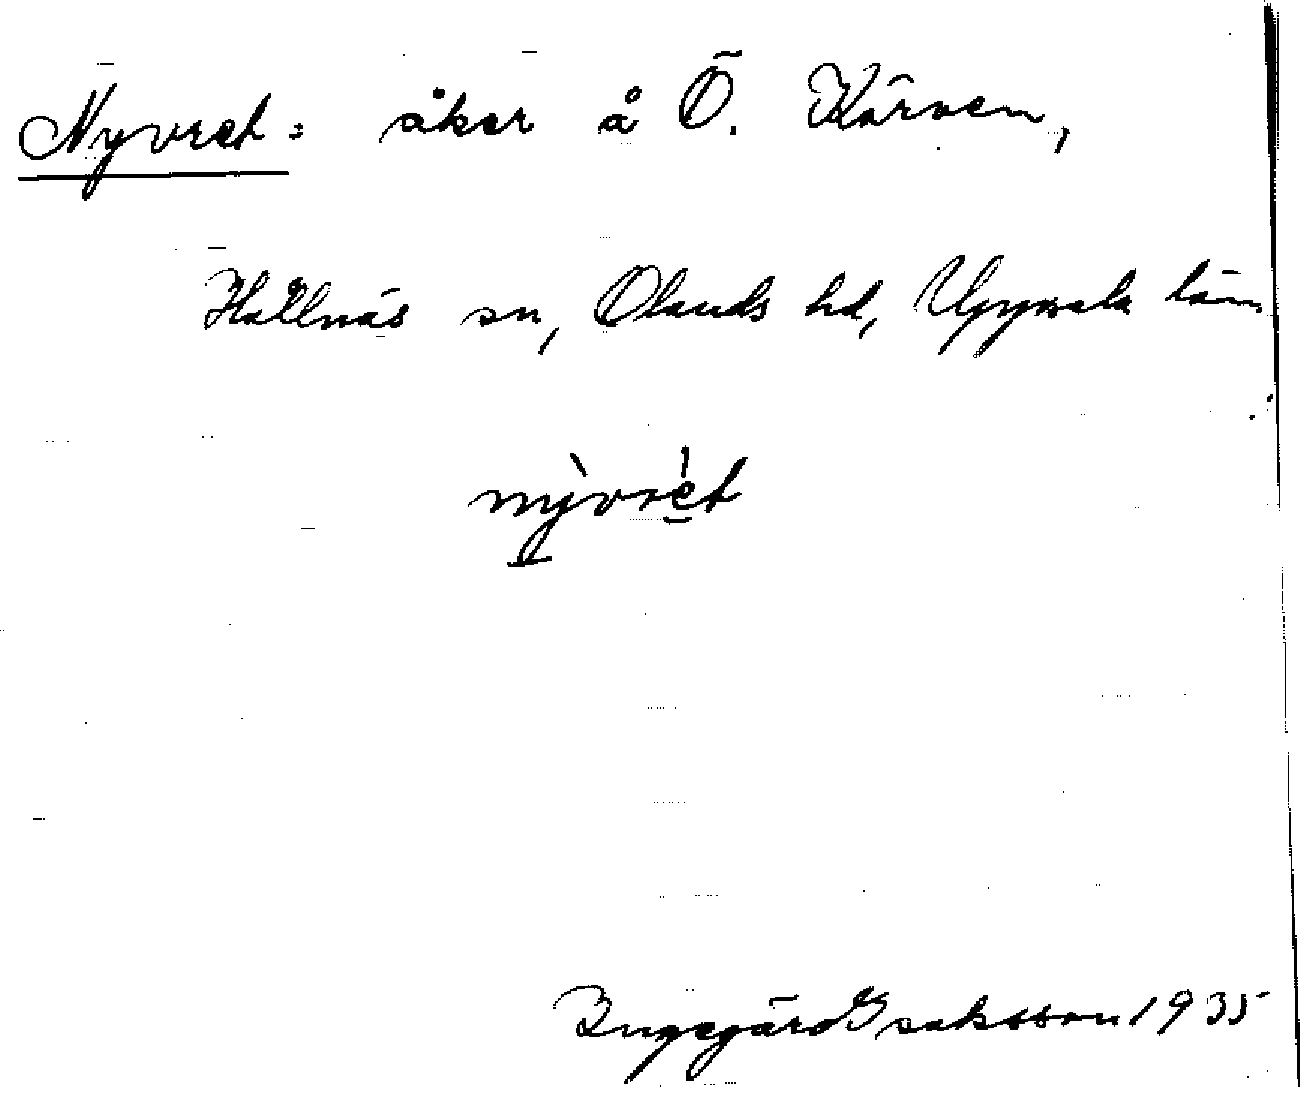 Nyvret: åker å Ö. Kärven,
Hållnäs sn, Olands hd, Uppsala län
nỳvrét
Ingegärd Isaksson 1935